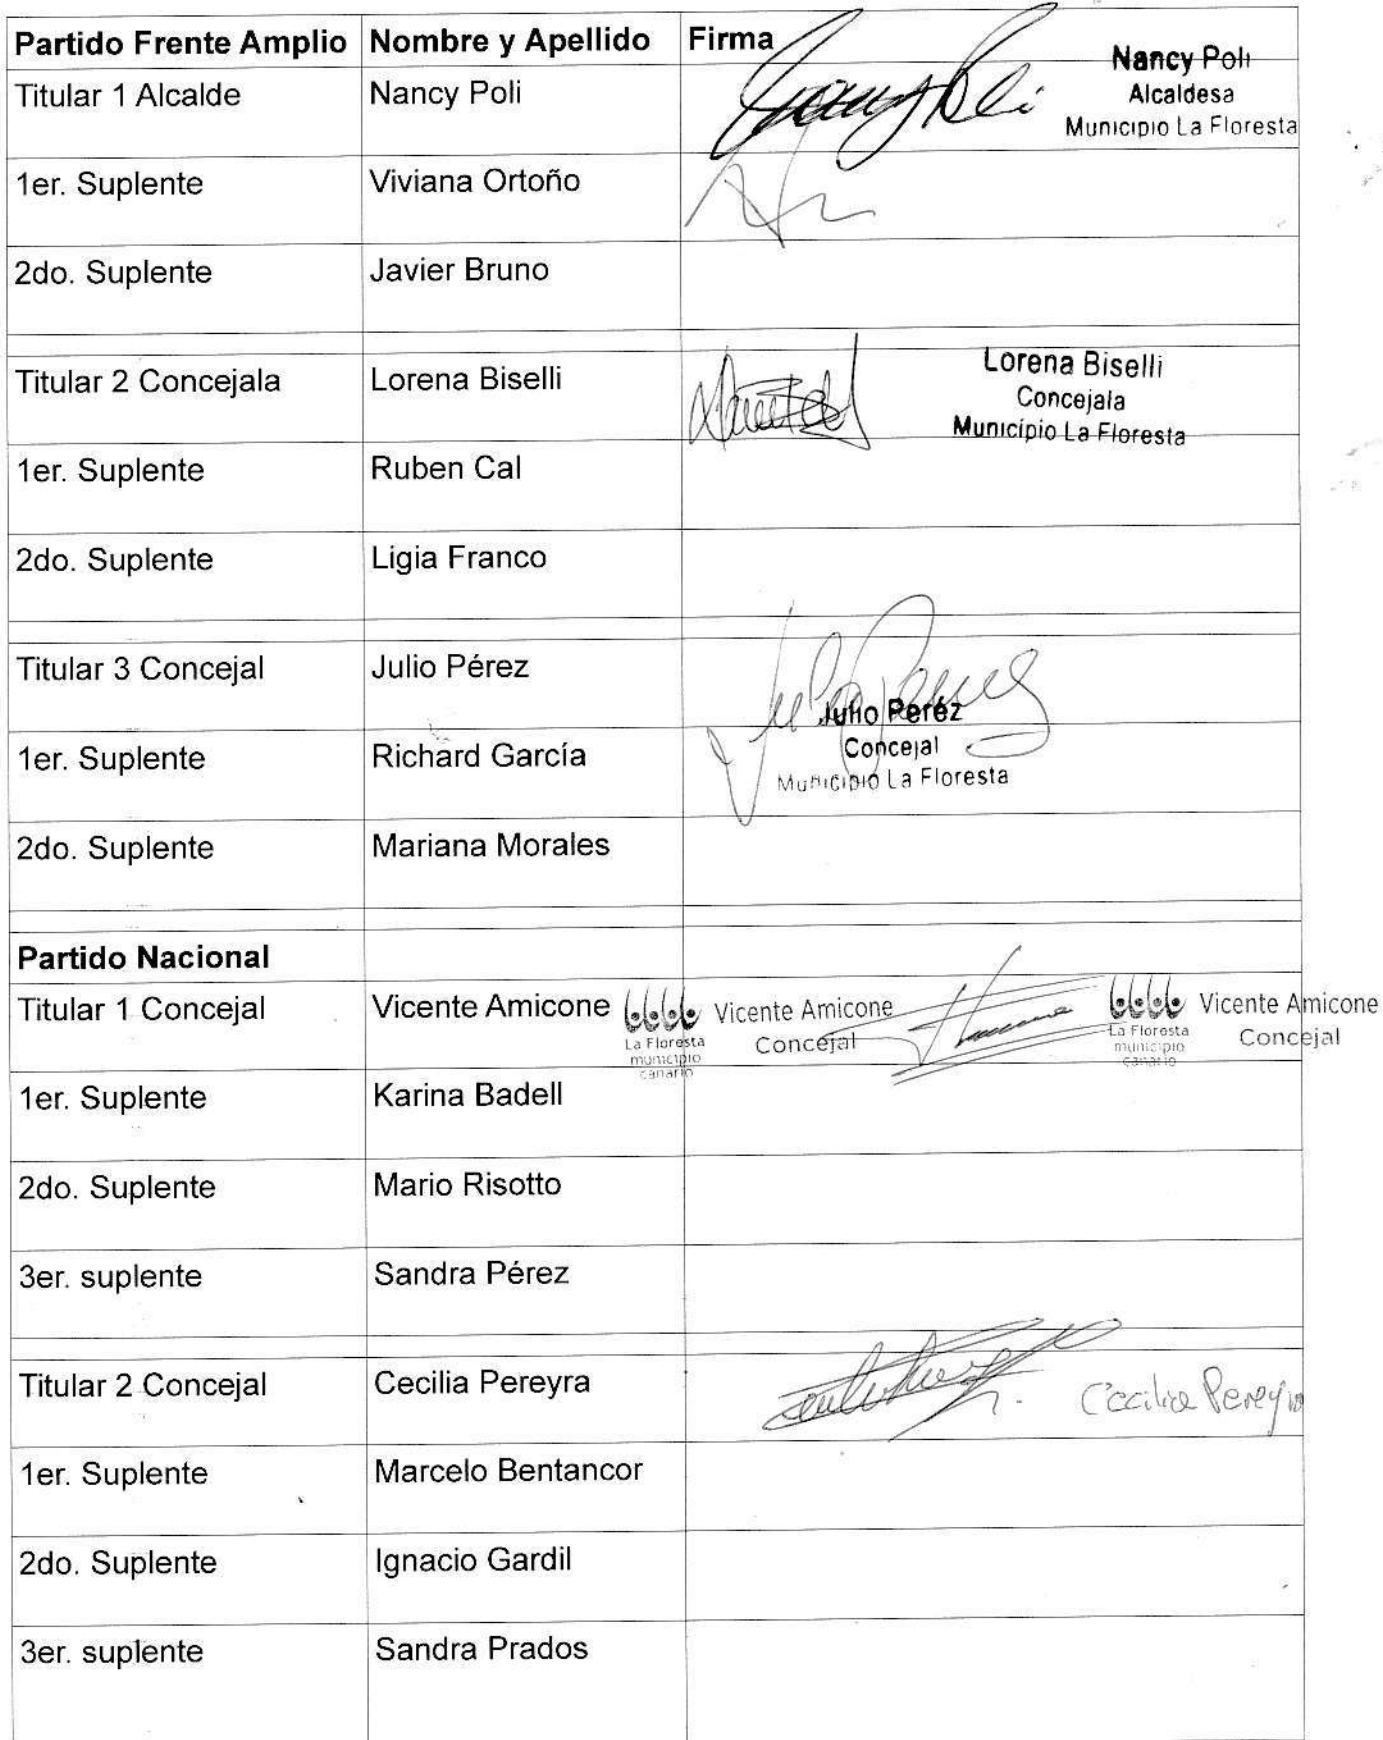 Partido Frente Amplio Nombre y Apellido Firma
Titular 1 Alcalde Nancy Poli
Nancy Poli
Alcaldesa
Municipio La Floresta
1er. Suplente Viviana Ortoño
2do. Suplente Javier Bruno
Titular 2 Concejala Lorena Biselli
Lorena Biselli
Concejala
Municipio La Floresta
1er. Suplente Ruben Cal
2do. Suplente Ligia Franco
Titular 3 Concejal Julio Pérez
Julio Peréz
Concejal
Municipio La Floresta
1er. Suplente Richard García
2do. Suplente Mariana Morales
Partido Nacional
Titular 1 Concejal Vicente Amicone
La Floresta
municipio
canario
Vicente Amicone
Concejal
La Floresta
municipio
canario
Vicente Amicone
Concejal
1er. Suplente Karina Badell
2do. Suplente Mario Risotto
3er. suplente Sandra Pérez
Titular 2 Concejal Cecilia Pereyra
Cecilia Pereyra
1er. Suplente Marcelo Bentancor
2do. Suplente Ignacio Gardil
3er. suplente Sandra Prados